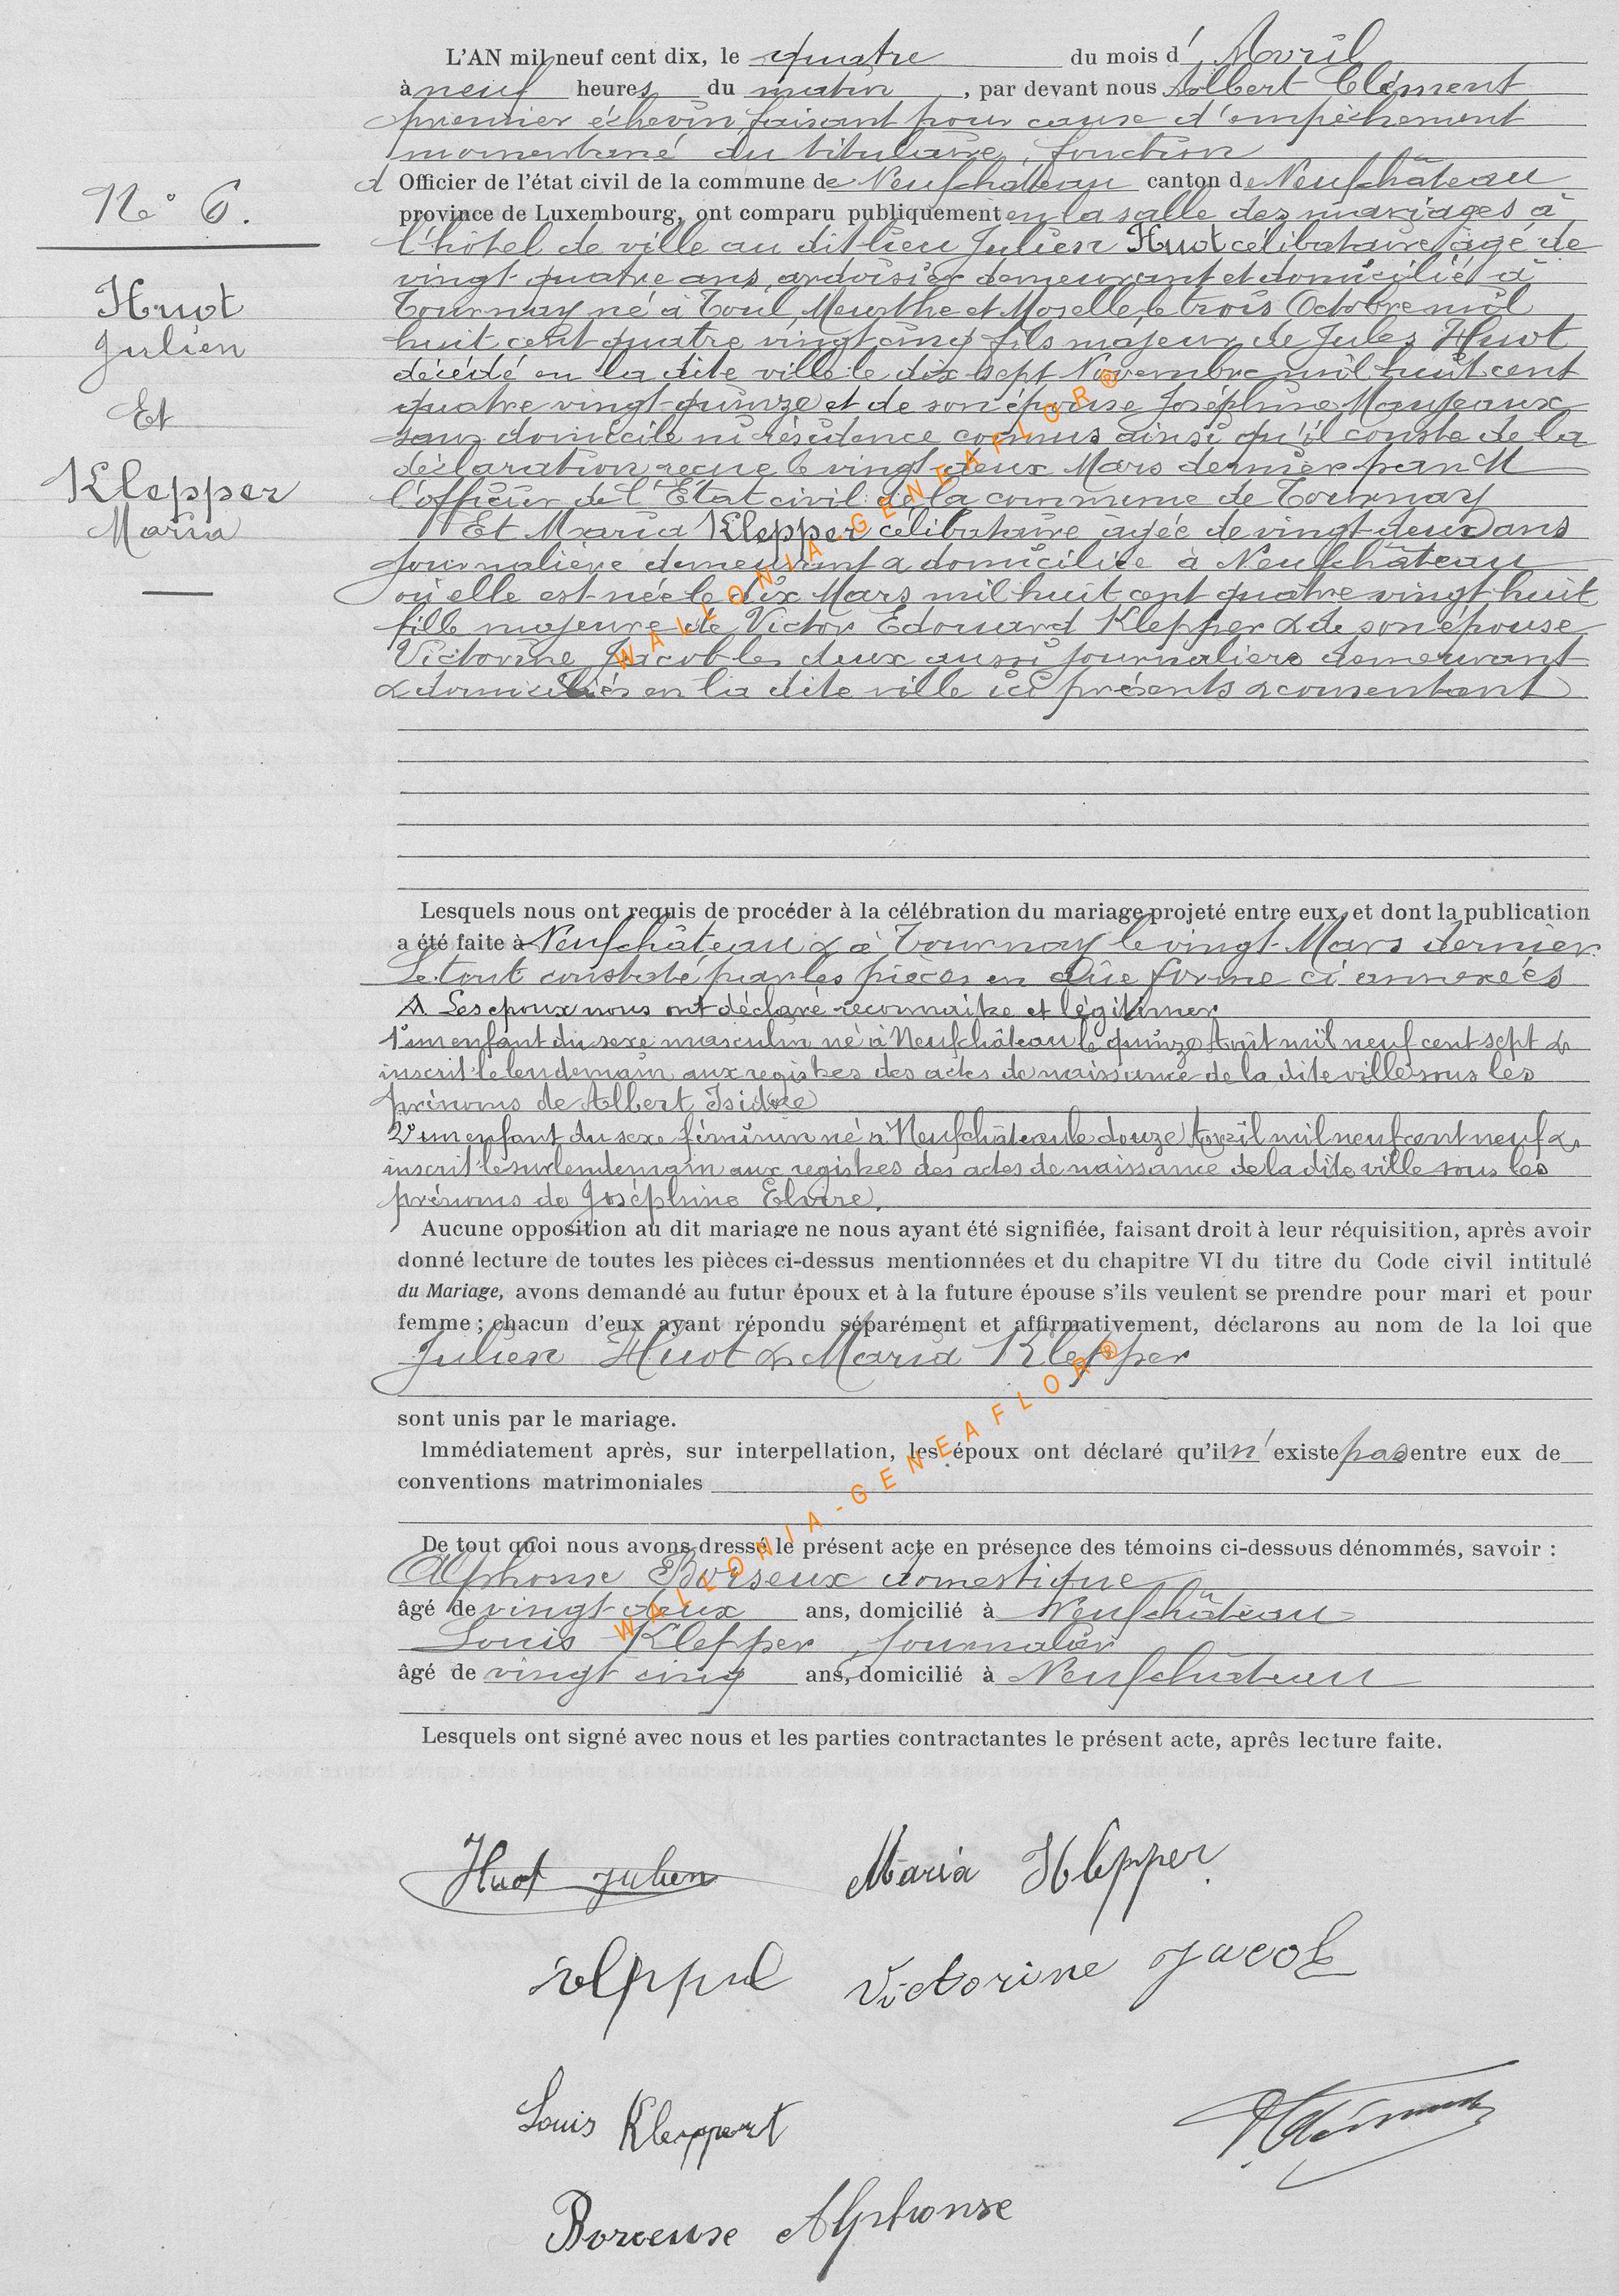 L'AN mil neuf cent dix, le quatre du mois d' Avril
à neuf heures du matin, par devant nous Albert Clément
premier échevin faisant pour cause d'empêchement
momentané du titulaire, fonction
d' Officier de l'état civil de la commune de Neufchâteau canton de Neufchâteau
province de Luxembourg, ont comparu publiquement en la salle des mariages à
l'hôtel de ville au dit lieu Julien Huot célibataire âgé de
vingt-quatre ans, ardoisier demeurant et domicilié à
Tournay né à Toul, Meurthe et Moselle, le trois Octobre mil
huit cent quatre vingt cinq fils majeur de Jules Huot
décédé en la dite ville le dix sept Novembre mil huit cent
quatre vingt-quinze et de son épouse Joséphine Maujeaux
sans domicile ni résidence connus ainsi qu'il conste de la
déclaration reçue le vingt deux Mars dernier par M
l'officier de l'Etat civil de la commune de Tournay
Et Maria Klepper célibataire âgée de vingt-deux ans
journalière demeurant & domiciliée à Neufchâteau
où elle est née le dix Mars mil huit cent quatre vingt huit
fille majeure de Victor Edouard Klepper & de son épouse
Victorine Jacob les deux aussi journaliers demeurant
& domiciliés en la dite ville ici présents & consentant
N° 6.
Huot
Julien
Et
Klepper
Maria
Lesquels nous ont requis de procéder à la célébration du mariage projeté entre eux, et dont la publication
a été faite à Neufchâteau & à Tournay le vingt Mars dernier
Le tout constaté par les pièces en due forme ci annexées
Les époux nous ont déclaré reconnaitre et légitimer
1° un enfant du sexe masculin né à Neufchâteau le quinze Août mil neuf cent sept &
inscrit le lendemain aux registres des actes de naissance de la dite ville sous les
prénoms de Albert Isidore
2° un enfant du sexe féminin né à Neufchâteau le douze Avril mil neuf cent neuf &
inscrit le surlendemain aux registres des actes de naissance de la dite ville sous les
prénoms de Joséphine Elvire.
Aucune opposition au dit mariage ne nous ayant été signifiée, faisant droit à leur réquisition, après avoir
donné lecture de toutes les pièces ci-dessus mentionnées et du chapitre VI du titre du Code civil intitulé
du Mariage, avons demandé au futur époux et à la future épouse s'ils veulent se prendre pour mari et pour
femme ; chacun d'eux ayant répondu séparément et affirmativement, déclarons au nom de la loi que
Julien Huot & Maria Klepper
sont unis par le mariage.
Immédiatement après, sur interpellation, les époux ont déclaré qu'il n' existe pas entre eux de
conventions matrimoniales
De tout quoi nous avons dressé le présent acte en présence des témoins ci-dessous dénommés, savoir :
Alphonse Borseux domestique
âgé de vingt-deux ans, domicilié à Neufchâteau
Louis Klepper, journalier
âgé de vingt cinq ans, domicilié à Neufchâteau
Lesquels ont signé avec nous et les parties contractantes le présent acte, après lecture faite.
Huot Julien Maria Klepper
Victorine Jacob
Louis Kleppert
Borceuse Alphonse
WALLONIA-GENEAFLOR®
WALLONIA-GENEAFLOR®